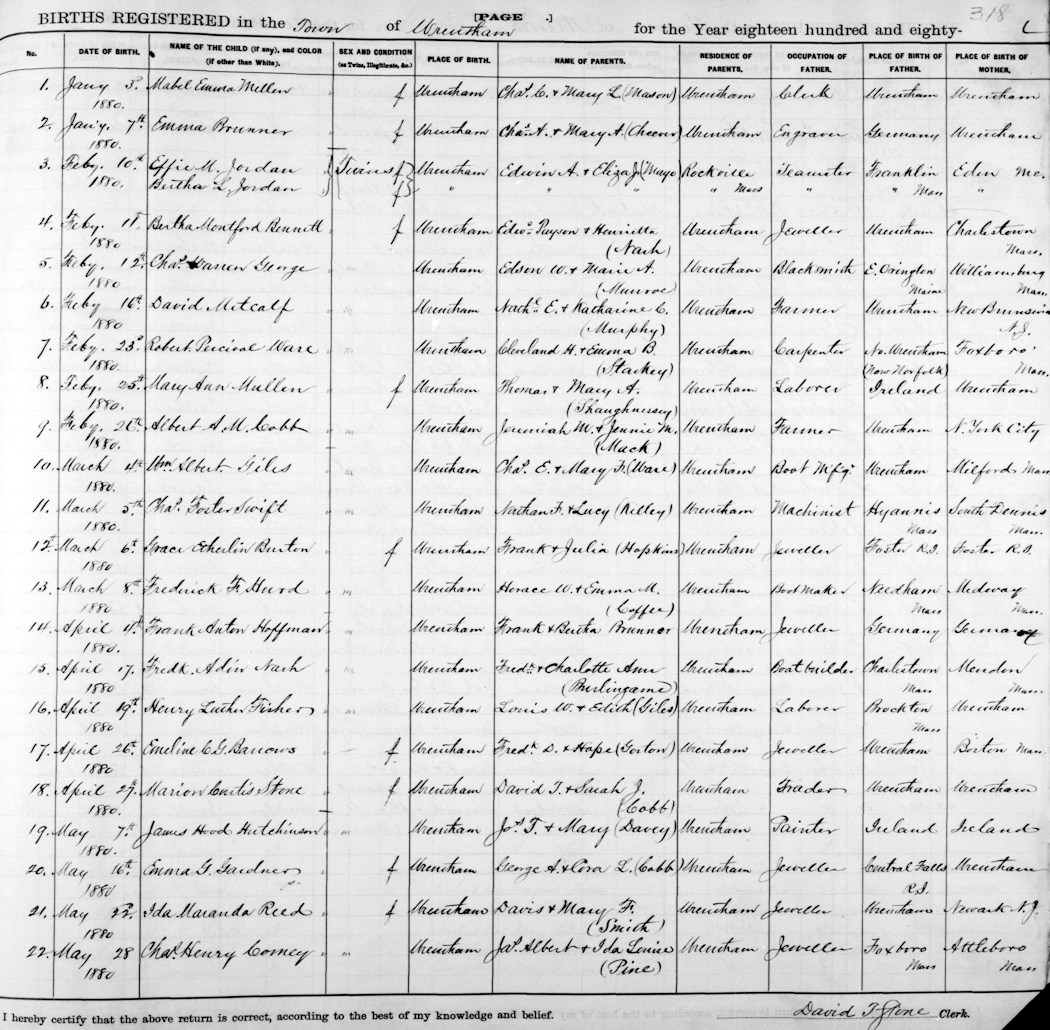 [PAGE .]
318
BIRTHS REGISTERED in the Town of Wrentham for the Year eighteen hundred and eighty-
No. DATE OF BIRTH. NAME OF THE CHILD (if any), and COLOR (if other than White). SEX AND CONDITION (as Twins, Illegitimate, &c.) PLACE OF BIRTH. NAME OF PARENTS. RESIDENCE OF PARENTS. OCCUPATION OF FATHER. PLACE OF BIRTH OF FATHER. PLACE OF BIRTH OF MOTHER.
1. Jany 3d. Mabel Emma Mellen " f Wrentham Chas. C. & Mary L. (Mason) Wrentham Clerk Wrentham Wrentham
1880.
2. Jan'y. 7th Emma Brunner " f Wrentham Chas. A. & Mary A. (Cheever) Wrentham Engraver Germany Wrentham
1880.
3. Feby. 10th Effie M. Jordan " Twins f Wrentham Edwin A. & Eliza J. (Mayo) Rockville Teamster Franklin Eden Me.
1880. Bertha L. Jordan " f " " " Mass " " Mass "
4. Feby. 11th Bertha Montford Bennett " f Wrentham Edwd. Payson & Henrietta Wrentham Jeweller Wrentham Charlestown
1880 (Nash) Mass.
5. Feby. 12th Chas. Warren George " m Wrentham Edson W. & Maria A. Wrentham Blacksmith E. Orington Williamsburg
1880 (Munroe) Maine Mass.
6. Feby 16th David Metcalf " m Wrentham Nathl. E. & Katharine C. Wrentham Farmer Wrentham New Brunswick
1880 (Murphy) N.J.
7. Feby. 23d. Robert Percival Ware " m Wrentham Cleveland H. & Emma B. Wrentham Carpenter No. Wrentham Foxboro'
1880. (Starkey) (Now Norfolk) Mass.
8. Feby. 25th Mary Ann Mullen " f Wrentham Thomas & Mary A. Wrentham Laborer Ireland Wrentham
1880. (Shaughnessy)
9. Feby. 26th Albert A. M. Cobb " m Wrentham Jeremiah M. & Jennie M. Wrentham Farmer Wrentham N. York City
1880. (Mack)
10. March 4th Wm. Albert Giles " m Wrentham Chas. E. & Mary F. (Ware) Wrentham Boot Mfgr. Wrentham Milford Mass
1880.
11. March 5th Chas. Foster Swift " m Wrentham Nathan F. & Lucy (Kelley) Wrentham Machinist Hyannis South Dennis
1880. Mass Mass.
12. March 6th Grace Etherlin Burton " f Wrentham Frank & Julia (Hopkins) Wrentham Jeweller Foster R.I. Foster R.I.
1880
13. March 8th Frederick F. Hurd " m Wrentham Horace W. & Emma M. Wrentham Bootmaker Needham Medway
1880 (Coffee) Mass Mass.
14. April 4th Frank Anton Hoffman " m Wrentham Frank & Bertha Brunner Wrentham Jeweller Germany Germany
1880.
15. April 17. Fredk. Adin Nash " m Wrentham Fredk. & Charlotte Ann Wrentham Boatbuilder Charlestown Mendon
1880 (Burlingame) Mass Mass.
16. April 19th Henry Luther Fisher " m Wrentham Louis W. & Edith (Giles) Wrentham Laborer Brockton Wrentham
1880 Mass
17. April 26th Emeline C. G. Barrows - f Wrentham Fredk. D. & Hope (Gorton) Wrentham Jeweller Wrentham Boston Mass.
1880
18. April 29. Marion Curtis Stone " f Wrentham David T. & Sarah J. Wrentham Trader Wrentham Wrentham
1880. (Cobb)
19. May 7th James Hood Hutchinson " m Wrentham Jos. T. & Mary (Davey) Wrentham Painter Ireland Ireland
1880.
20. May 16th Emma G. Gardner " f Wrentham George A. & Cora L. (Cobb) Wrentham Jeweller Central Falls Wrentham
1880 R.I.
21. May 22. Ida Maranda Reed " f Wrentham Davis & Mary F. Wrentham Jeweller Wrentham Newark N.J.
1880 (Smith)
22. May 28 Chas. Henry Corney " m Wrentham Jas. Albert & Ida Louise Wrentham Jeweller Foxboro Attleboro
1880 (Pine) Mass Mass
I hereby certify that the above return is correct, according to the best of my knowledge and belief. David T. Stone Clerk.